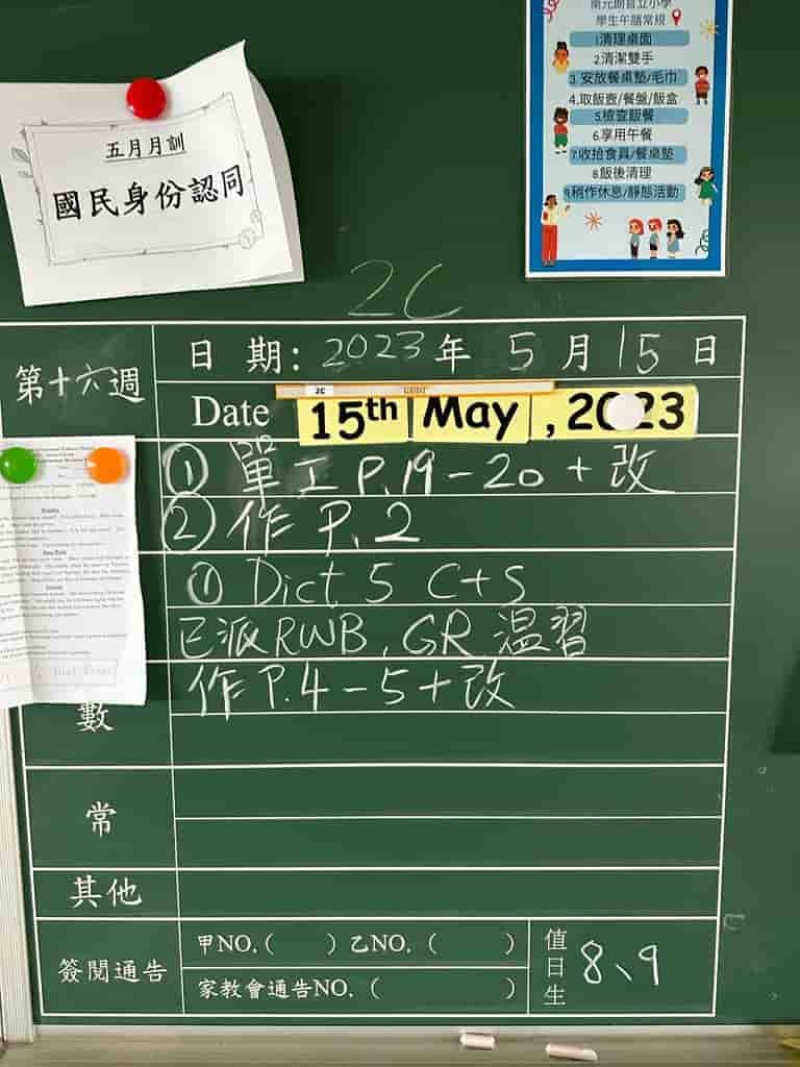 五月月訓
國民身份認同
南元朗官立小學
學生午膳常規
1清理桌面
2.清潔雙手
3.安放餐桌墊/毛巾
4.取飯壺/餐盤/飯盒
5.檢查飯餐
6.享用午餐
7.收拾食具/餐桌墊
8.飯後清理
9.稍作休息/靜態活動
2C
第十六週
日 期: 2023 年 5 月 15 日
Date 15th May , 2023
① 單工 P.19-20 + 改
② 作 P.2
① Dict 5 C+S
已派RWB, GR 溫習
作 P.4-5+改
數
常
其他
簽閱通告
甲NO.( ) 乙NO. ( )
家教會通告NO. ( )
值日生 8、9